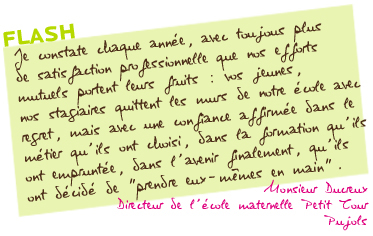 FLASH
Je constate chaque année, avec toujours plus
de satisfaction professionnelle que nos efforts
mutuels portent leurs fruits : vos jeunes,
nos stagiaires quittent les murs de notre école avec
regret, mais avec une confiance affirmée dans le
métier qu'ils ont choisi, dans la formation qu'ils
ont empruntée, dans l'avenir finalement, qu'ils
ont décidé de "prendre eux-mêmes en main".
Monsieur Ducreux
Directeur de l'école maternelle Petit Tour
Pujols